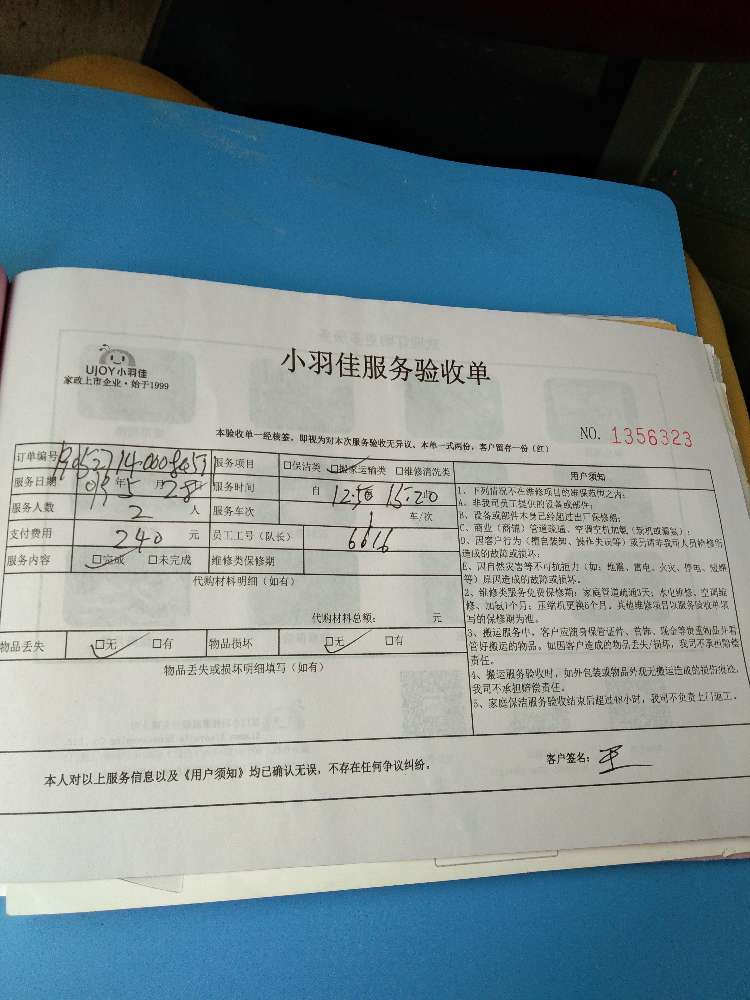 UJOY小羽佳
家政上市企业·始于1999
小羽佳服务验收单
本验收单一经核签，即视为对本次服务验收无异议、本单一式两份，客户留存一份（红）
NO. 1356323
订单编号 服务项目 □保洁类 □搬家运输类 □维修清洗类
服务日期 19年5月28 服务时间 自 12:50 15:20
服务人数 2 人 服务车次 1 车/次
支付费用 240 元 员工工号（队长） 6616
服务内容 □完成 □未完成 维修类保修期
代购材料明细（如有）
代购材料总额： 元
物品丢失 □无 □有 物品损坏 □无 □有
物品丢失或损坏明细填写（如有）
用户须知
1、下列情况不在维修项目的维保范围之内：
A、非我司员工提供的设备或部件；
B、设备或部件本身已经超过出厂保修期；
C、商业（商铺）管道疏通、空调空机加氨（缺机或漏氨）；
D、因客户行为（擅自装卸、操作失误等）或另请非我司人员维修而
造成的故障或损坏；
E、因自然灾害等不可抗拒力（如：地震、雷电、火灾、停电、短路
等）原因造成的故障或损坏。
2、维修类服务免费保修期：家庭管道疏通3天；水电维修、空调维
修、加氨1个月；压缩机更换6个月。其他维修项目以服务验收单填
写的保修期为准。
3、搬运服务中，客户应随身保管证件、首饰、现金等贵重物品并看
管好搬运的物品。如因客户造成的物品丢失/损坏，我司不承担赔偿
责任。
4、搬运服务验收时，如外包装或物品外观无搬运造成的损伤痕迹，
我司不承担赔偿责任。
5、家庭保洁服务验收结束后超过48小时，我司不负责上门返工。
本人对以上服务信息以及《用户须知》均已确认无误，不存在任何争议纠纷。
客户签名：